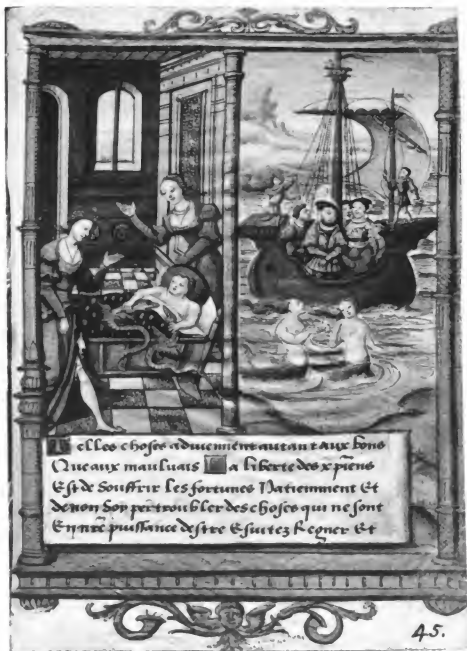 Telles choses adviennent autant aux bons
Que aux mauluais La liberte des xpiens
Est de Souffrir Les fortunes Patiemment Et
de non Soy perturbler des choses qui ne sont
En nrē puissance destre Esuitez Regner Et
45.